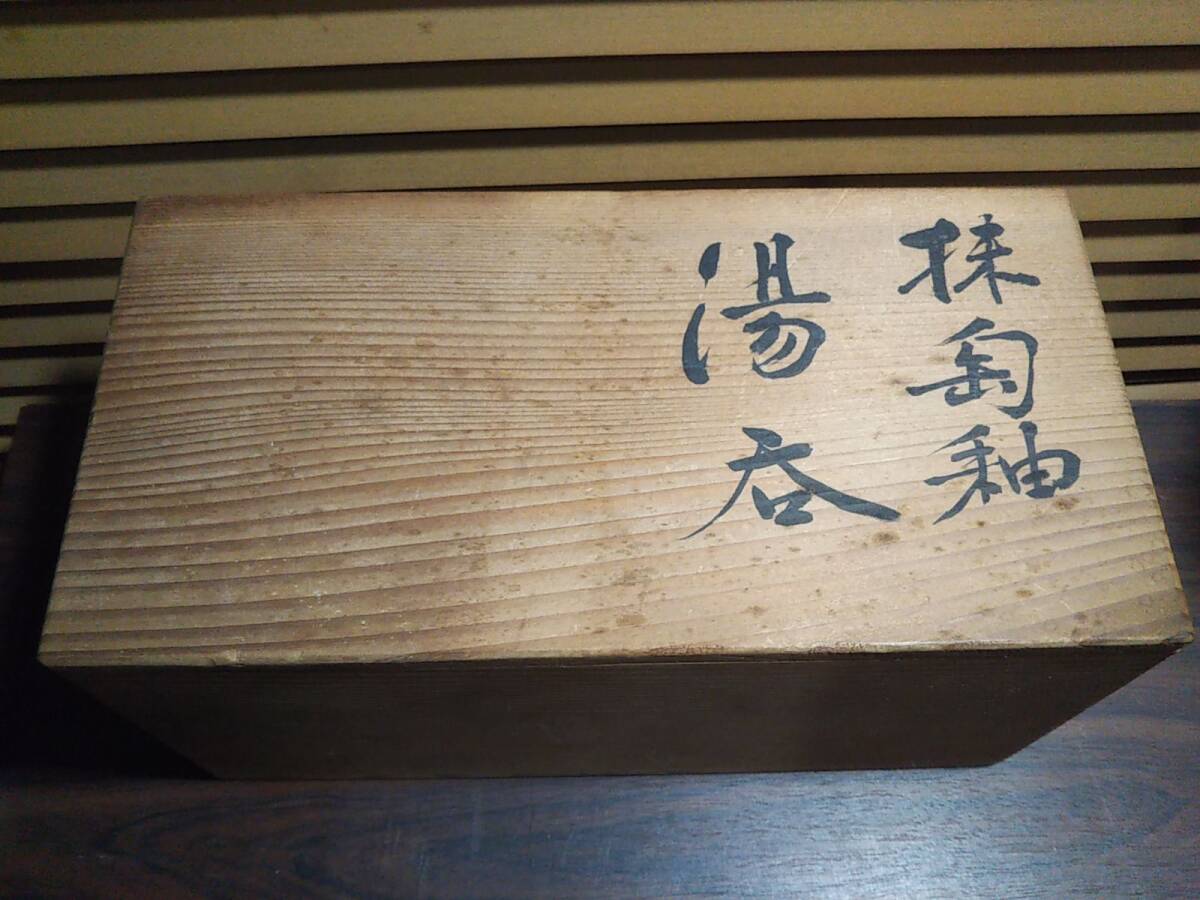 抹匋釉
湯呑